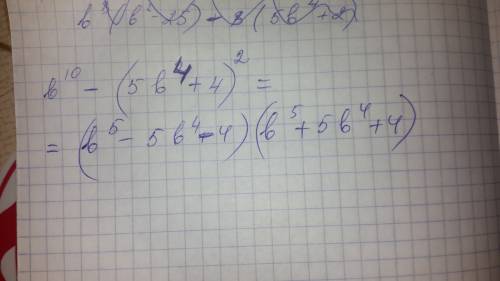 b¹⁰ - (5b⁴ + 4)² =
= (b⁵ - 5b⁴ - 4)(b⁵ + 5b⁴ + 4)